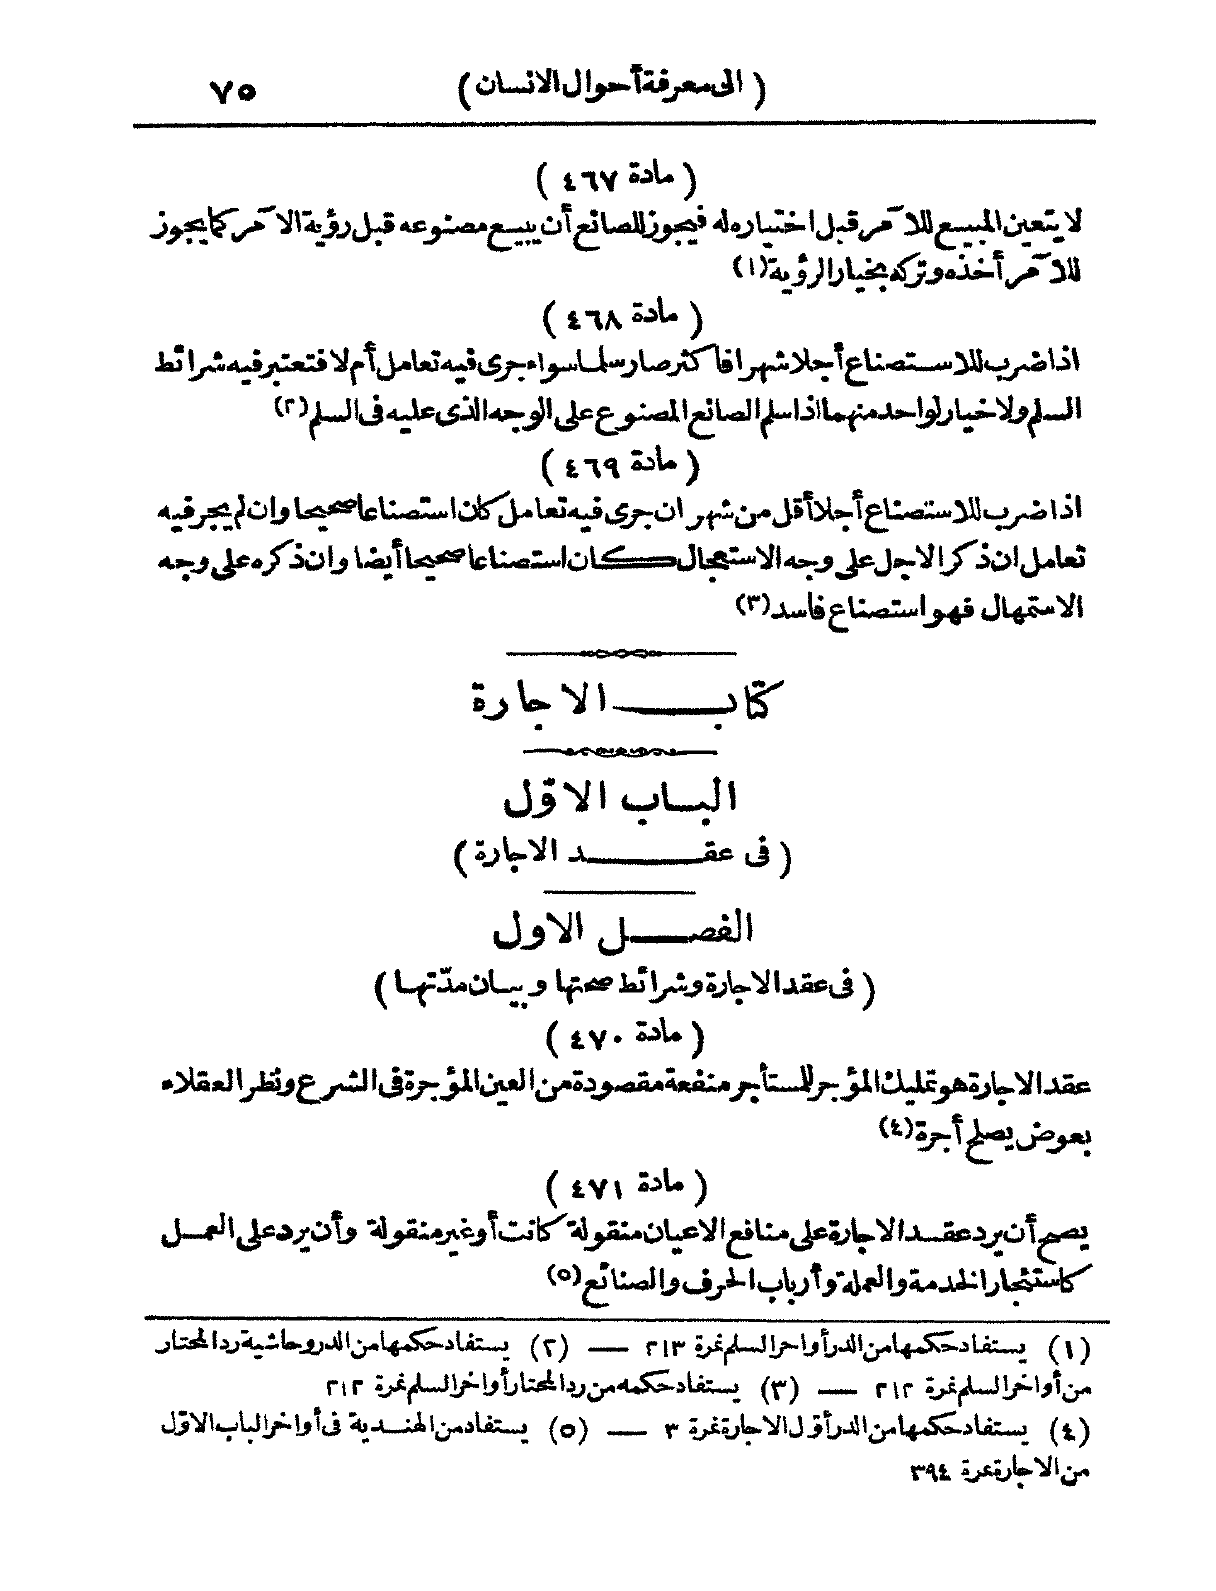 ( الى معرفة أحوال الانسان ) ٧٥
( مادة ٤٦٧ )
لا يتعين المبيع للآمر قبل اختياره له فيجوز للصانع أن يبيع مصنوعه قبل رؤية الآمر كما يجوز
للآمر أخذه وتركه بخيار الرؤية (١)
( مادة ٤٦٨ )
اذا ضرب للاستصناع أجلا شهرا فأكثر صار سلما سواء جرى فيه تعامل أم لا فتعتبر فيه شرائط
السلم ولا خيار لواحد منهما اذا سلم الصانع المصنوع على الوجه الذى عليه فى السلم (٢)
( مادة ٤٦٩ )
اذا ضرب للاستصناع أجلا أقل من شهر ان جرى فيه تعامل كان استصناعا صحيحا وان لم يجر فيه
تعامل ان ذكر الاجل على وجه الاستعجال كان استصناعا صحيحا أيضا وان ذكره على وجه
الاستمهال فهو استصناع فاسد (٣)
كتاب الاجارة
الباب الاوّل
( فى عقد الاجارة )
الفصل الاول
( فى عقد الاجارة وشرائط صحتها وبيان مدّتها )
( مادة ٤٧٠ )
عقد الاجارة هو تمليك المؤجر للمستأجر منفعة مقصودة من العين المؤجرة فى الشرع ونظر العقلاء
بعوض يصلح أجرة (٤)
( مادة ٤٧١ )
يصح أن يرد عقد الاجارة على منافع الاعيان منقولة كانت أو غير منقولة وأن يرد على العمل
كاستئجار الخدمة والعملة وأرباب الحرف والصنائع (٥)
(١) يستفاد حكمها من الدر أواخر السلم نمرة ٢١٣ — (٢) يستفاد حكمها من الدر وحاشية رد المحتار
من أواخر السلم نمرة ٢١٢ — (٣) يستفاد حكمه من رد المحتار أواخر السلم نمرة ٢١٢
(٤) يستفاد حكمها من الدر أوّل الاجارة نمرة ٣ — (٥) يستفاد من الهندية فى أواخر الباب الاوّل
من الاجارة نمرة ٣٩٤